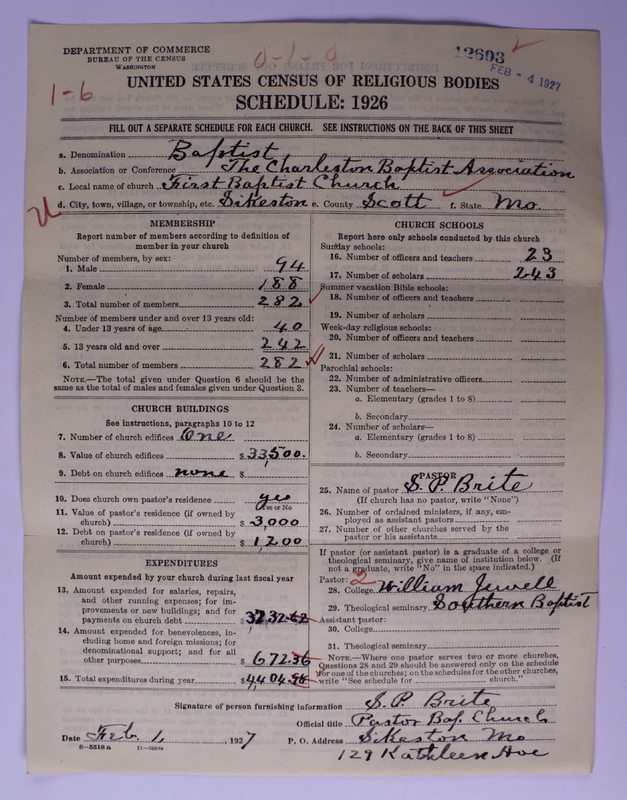 DEPARTMENT OF COMMERCE
BUREAU OF THE CENSUS
WASHINGTON
0-1-0
12693
FEB - 4 1927
1-6
UNITED STATES CENSUS OF RELIGIOUS BODIES
SCHEDULE: 1926
FILL OUT A SEPARATE SCHEDULE FOR EACH CHURCH. SEE INSTRUCTIONS ON THE BACK OF THIS SHEET
a. Denomination Baptist
b. Association or Conference The Charleston Baptist Association
c. Local name of church First Baptist Church
d. City, town, village, or township, etc. Sikeston e. County Scott f. State Mo.
MEMBERSHIP
Report number of members according to definition of
member in your church
Number of members, by sex:
1. Male 94
2. Female 188
3. Total number of members 282
Number of members under and over 13 years old:
4. Under 13 years of age 40
5. 13 years old and over 242
6. Total number of members 282
NOTE.—The total given under Question 6 should be
same as the total of males and females given under Question 3.
CHURCH BUILDINGS
See instructions, paragraphs 10 to 12
7. Number of church edifices One
8. Value of church edifices $33,500.
9. Debt on church edifices none $
10. Does church own pastor's residence yes
Yes or No
11. Value of pastor's residence (if owned by
church) $3,000
12. Debt on pastor's residence (if owned by
church) $1,200
EXPENDITURES
Amount expended by your church during last fiscal year
13. Amount expended for salaries, repairs,
and other running expenses; for im-
provements or new buildings; and for
payments on church debt $
14. Amount expended for benevolences, in-
cluding home and foreign missions; for
denominational support; and for all
other purposes $672.36
15. Total expenditures during year $4404.98
CHURCH SCHOOLS
Report here only schools conducted by this church
Sunday schools:
16. Number of officers and teachers 23
17. Number of scholars 243
Summer vacation Bible schools:
18. Number of officers and teachers
19. Number of scholars
Week-day religious schools:
20. Number of officers and teachers
21. Number of scholars
Parochial schools:
22. Number of administrative officers
23. Number of teachers—
a. Elementary (grades 1 to 8)
b. Secondary
24. Number of scholars—
a. Elementary (grades 1 to 8)
b. Secondary
PASTOR
25. Name of pastor S. P. Brite
(If church has no pastor, write "None")
26. Number of ordained ministers, if any, em-
ployed as assistant pastors
27. Number of other churches served by the
pastor or his assistants
If pastor (or assistant pastor) is a graduate of a college or
theological seminary, give name of institution below. (If
not a graduate, write "No" in the space indicated.)
Pastor: 2
28. College William Jewell
29. Theological seminary Southern Baptist
Assistant pastor:
30. College
31. Theological seminary
NOTE.—Where one pastor serves two or more churches,
Questions 28 and 29 should be answered only on the schedule
for one of the churches; on the schedules for the other churches,
write "See schedule for church."
Signature of person furnishing information S. P. Brite
Official title Pastor Bap. Church
Date Feb. 1, 1927 P. O. Address Sikeston Mo
129 Kathleen Ave
8-5518a